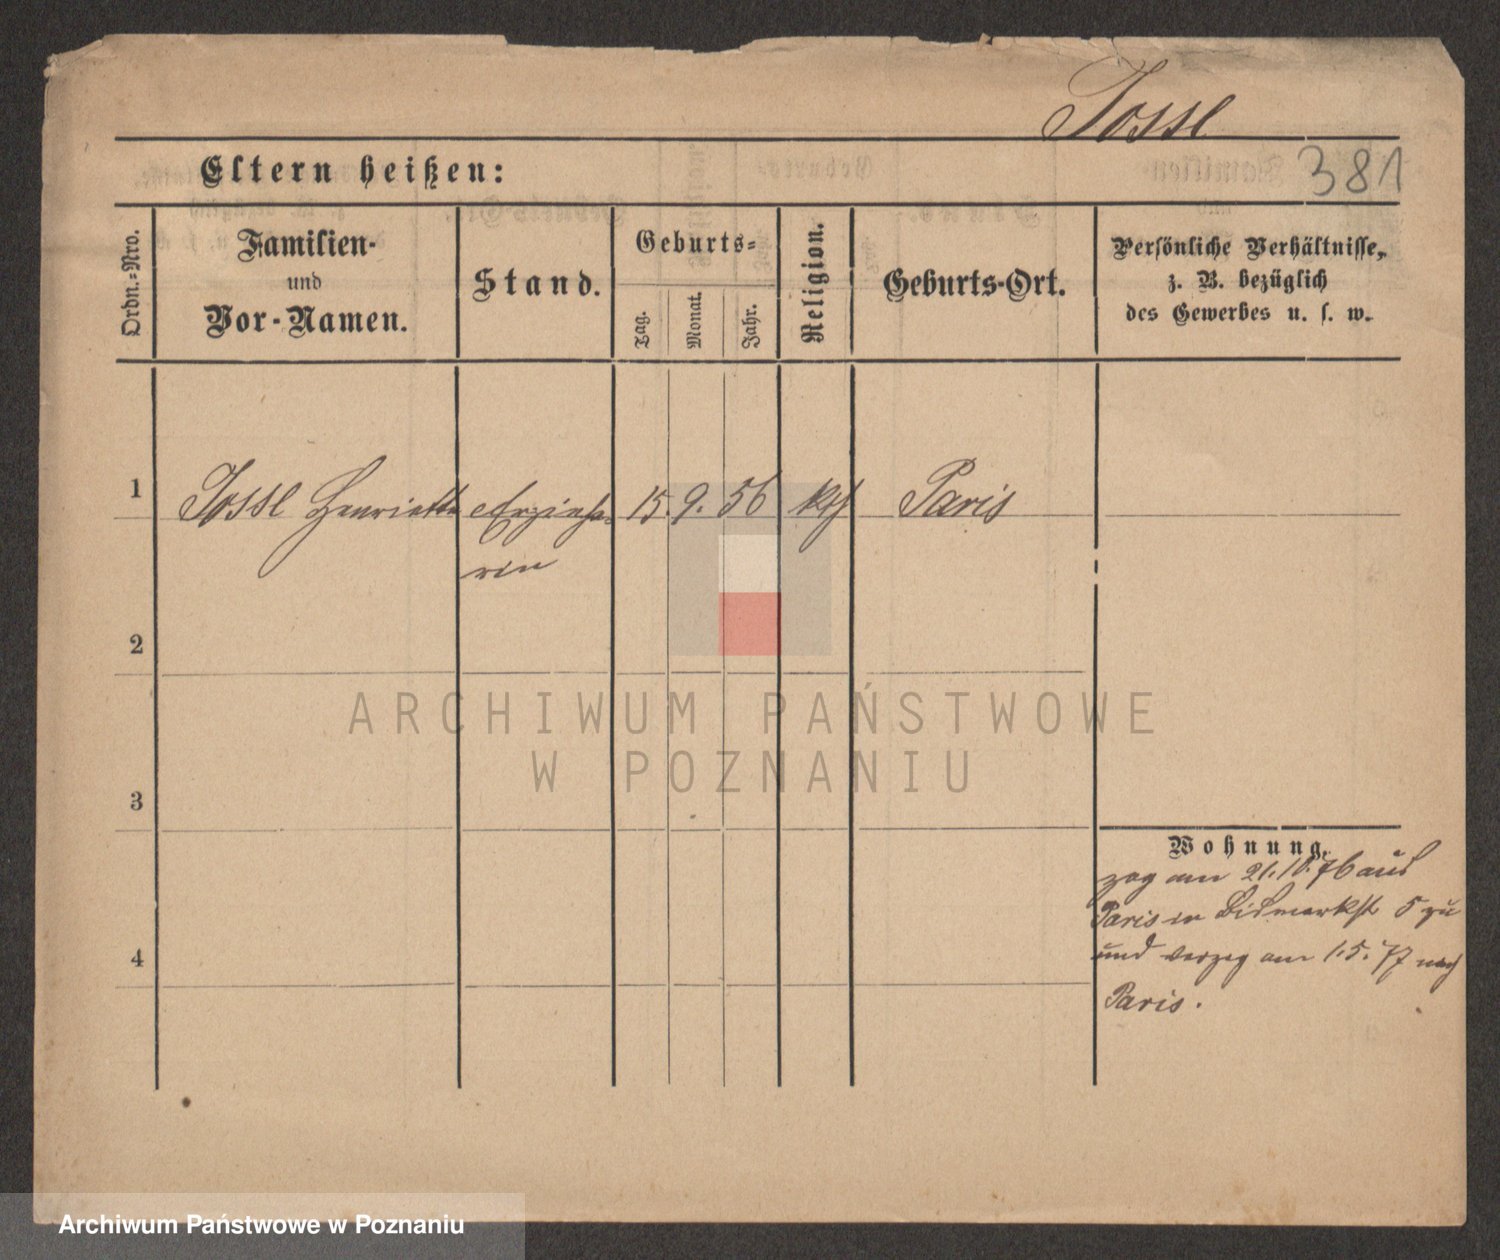 Jossl
381
Eltern heißen:
Ordn.-Nro.
Familien-
und
Vor-Namen.
Stand.
Geburts-
Tag.
Monat.
Jahr.
Religion.
Geburts-Ort.
Persönliche Verhältnisse,
z. B. bezüglich
des Gewerbes u. s. w.
1
Jossl Henriette
Erziehe-
rin
15.
9.
56
kth
Paris
2
3
4
Wohnung.
zog am 21.10.76 aus
Paris in Bismarkst 5 zu
und verzog am 1.5.77 nach
Paris.
ARCHIWUM PAŃSTWOWE
W POZNANIU
Archiwum Państwowe w Poznaniu